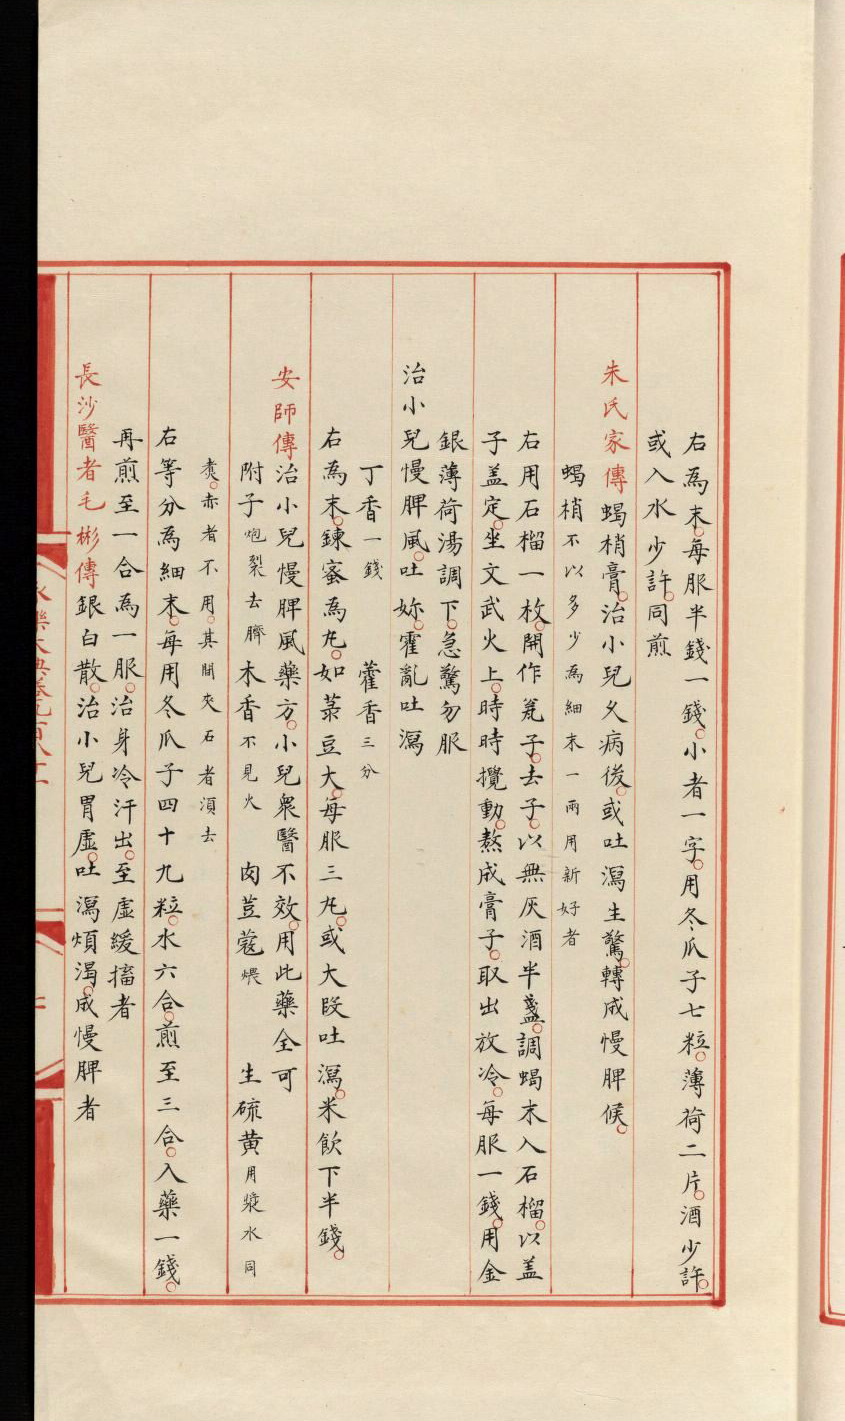 右為末。每服半錢一錢。小者一字。用冬瓜子七粒。薄荷二片。酒少許。
或入水少許。同煎
朱氏家傳蝎梢膏。治小兒久病後。或吐瀉生驚。轉成慢脾候。
蝎梢不以多少為細末一兩用新好者
右用石榴一枚。開作瓮子。去子。以無灰酒半盞。調蝎末入石榴。以盖
子盖定。坐文武火上。時時攪動。熬成膏子。取出放冷。每服一錢。用金
銀薄荷湯調下。急驚勿服
治小兒慢脾風。吐妳。霍亂吐瀉
丁香一錢 藿香三分
右為末。鍊蜜為丸。如菉豆大。每服三丸。或大段吐瀉。米飲下半錢。
安師傳治小兒慢脾風藥方。小兒衆醫不效。用此藥全可
附子炮裂去臍 木香不見火 肉荳蔻煨 生硫黄用漿水同
煑。赤者不用。其間夾石者湏去
右等分為細末。每用冬瓜子四十九粒。水六合。煎至三合。入藥一錢。
再煎至一合為一服。治身冷汗出。至虛緩搐者
長沙醫者毛彬傳銀白散。治小兒胃虛。吐瀉煩渴。成慢脾者